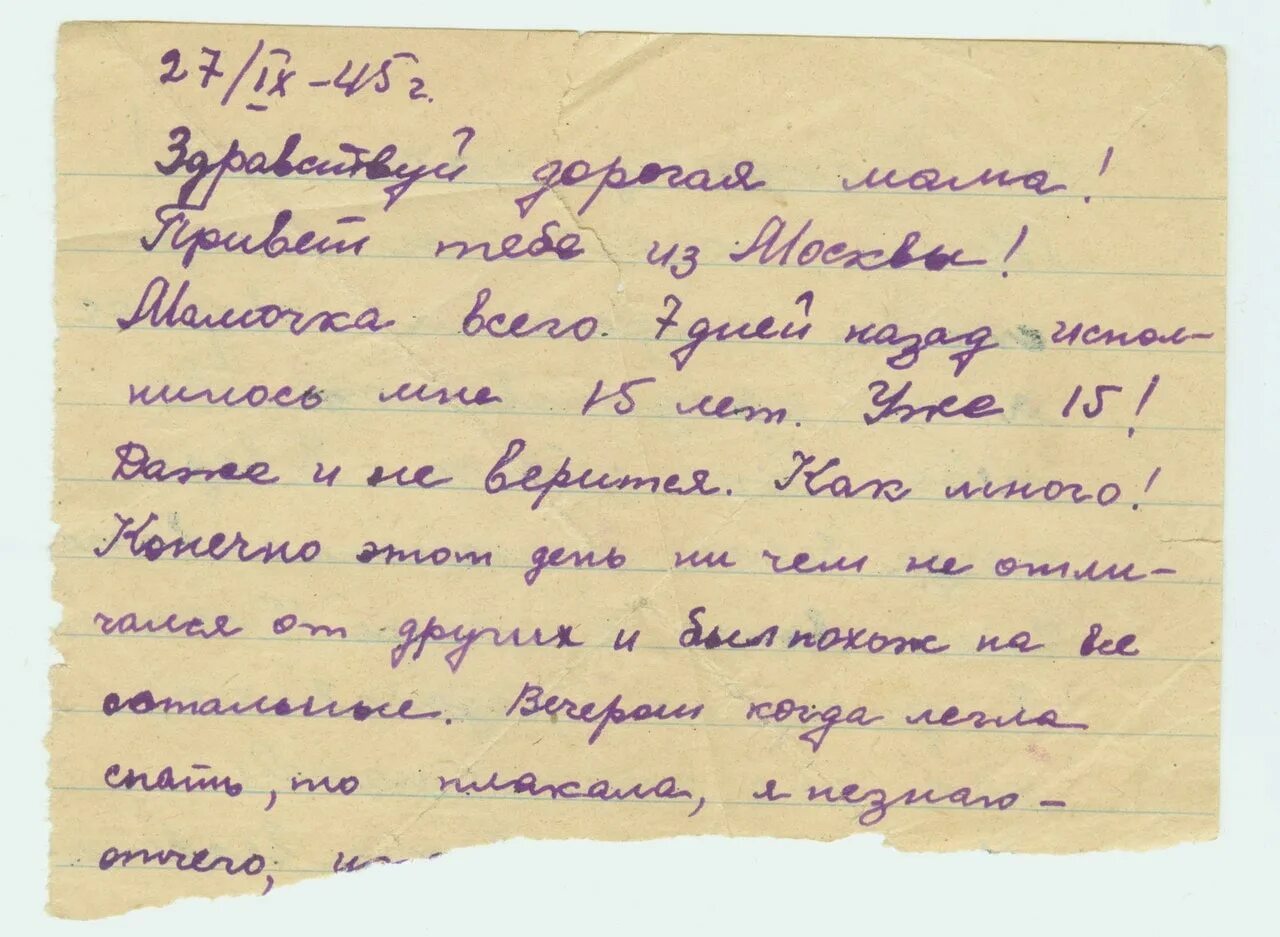 27/IX-45г.
Здравствуй дорогая мама!
Привет тебе из Москвы!
Мамочка всего. 7 дней назад испол-
нилось мне 15 лет. Уже 15!
Даже и не верится. Как много!
Конечно этот день ни чем не отли-
чался от других и был похож на все
остальные. Вечером когда легла
спать, то плакала, я незнаю-
отчего,